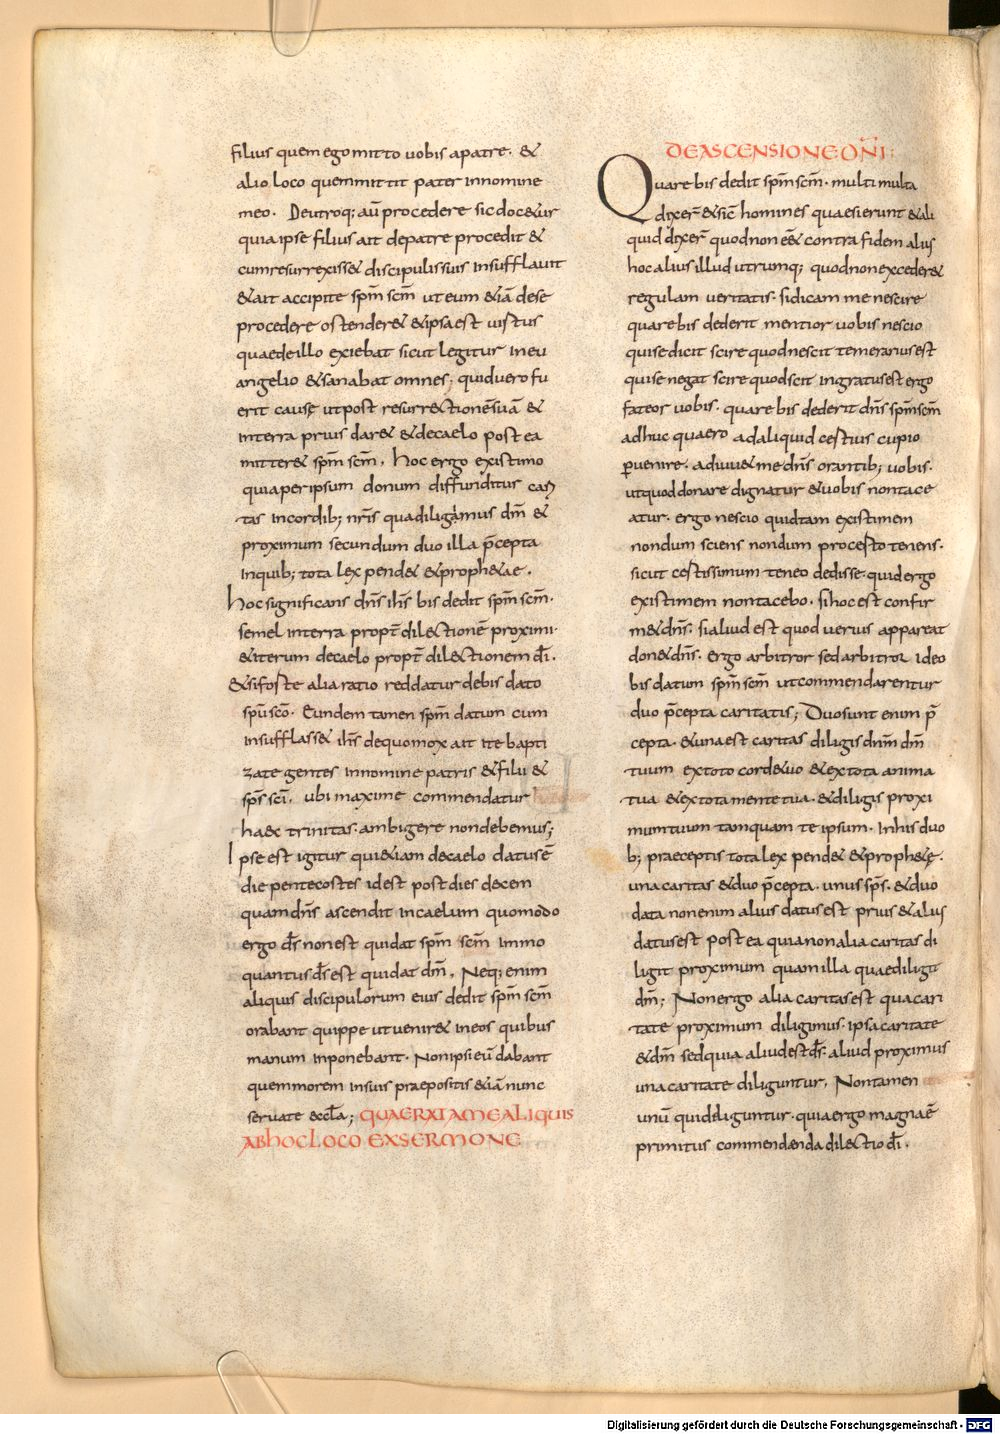 filius quem ego mitto uobis a patre. &
alio loco quem mittit pater in nomine
meo. Deutroq; aū procedere sic doc&ur
quia ipse filius ait de patre procedit &
cum resurrexiss& discipulis suis insufflauit
& ait accipite spm̄ scm̄ ut eum &iā de se
procedere ostender& & ipsa est uirtus
quae de illo exiebat sicut legitur in eu
angelio & sanabat omnes; quid uero fu
erit causę ut post resurr&tionē suā &
in terra prius dar& & de caelo post ea
mitter& spm̄ scm̄. Hoc ergo existimo
quia per ipsum donum diffunditur cari
tas in cordib; nr̄is qua diligamus dm̄ &
proximum secundum duo illa p̄cepta
in quib; tota lex pend& & proph&ae.
Hoc significans dn̄s ih̄s bis dedit spm̄ scm̄.
semel in terra propt̄ dil&tionē proximi.
& iterum de caelo propt̄ dil&tionem dī.
& si forte alia ratio reddatur de bis dato
spū scō. Eundem tamen spm̄ datum cum
insufflass& ih̄s de quo mox ait ite bapti
zate gentes in nomine patris & filii &
sps̄ scī. ubi maxime commendatur
haec trinitas. ambigere non debemus;
Ipse est igitur qui &iam de caelo datus ē
die pentecostes id est post dies decem
quam dn̄s ascendit in caelum quomodo
ergo ds̄ non est qui dat spm̄ scm̄ immo
quantus ds̄ est qui dat dm̄. Neq; enim
aliquis discipulorum eius dedit spm̄ scm̄
orabant quippe ut uenir& in eos quibus
manum inponebant. Non ipsi eū dabant
quem morem in suis praepositis &iā nunc
seruat & eccla; QUAERATAMEALIQUIS
ABHOCLOCO EXSERMONE
DEASCENSIONE DN̄I:
Quare bis dedit spm̄ scm̄. multi multa
dixer̄ & sic̄ homines quaesierunt & ali
quid dixer̄ quod non ē& contra fidem alius
hoc alius illud utrumq; quod non exceder&
regulam ueritatis. si dicam me nescire
quare bis dederit mentior uobis nescio
qui se dicit scire quod nescit temerarius est
qui se negat scire quod scit ingratus est ergo
fateor uobis. quare bis dederit dn̄s spm̄ scm̄
adhuc quaero ad aliquid certius cupio
puenire. adiuu& me dn̄s orantib; uobis.
ut quod donare dignatur & uobis non tace
atur. ergo nescio quid tam existimem
nondum sciens nondum pro certo tenens.
sicut certissimum teneo dedisse. quid ergo
existimem non tacebo. si hoc est confir
m& dn̄s. si aliud est quod uerius appareat
don& dn̄s. ergo arbitror sed arbitror ideo
bis datum spm̄ scm̄ ut commendarentur
duo p̄cepta caritatis; Duo sunt enim p̄
cepta. & una est caritas diligis dn̄m dm̄
tuum ex toto corde tuo & ex tota anima
tua & ex tota mente tua. & diligis proxi
mum tuum tamquam te ipsum. In his duo
b; praeceptis tota lex pend& & proph&ę.
una caritas & duo p̄cepta. unus sps̄. & duo
data non enim alius datus est prius & alius
datus est postea quia non alia caritas di
ligit proximum quam illa quae diligit
dm̄; Non ergo alia caritas est qua cari
tate proximum diligimus. ipsa caritate
& dm̄ sed quia aliud est ds̄. aliud proximus
una caritate diliguntur. Non tamen
unū qui diliguntur. quia ergo magna ē
primitus commendanda dil&tio dī.
Digitalisierung gefördert durch die Deutsche Forschungsgemeinschaft - DFG